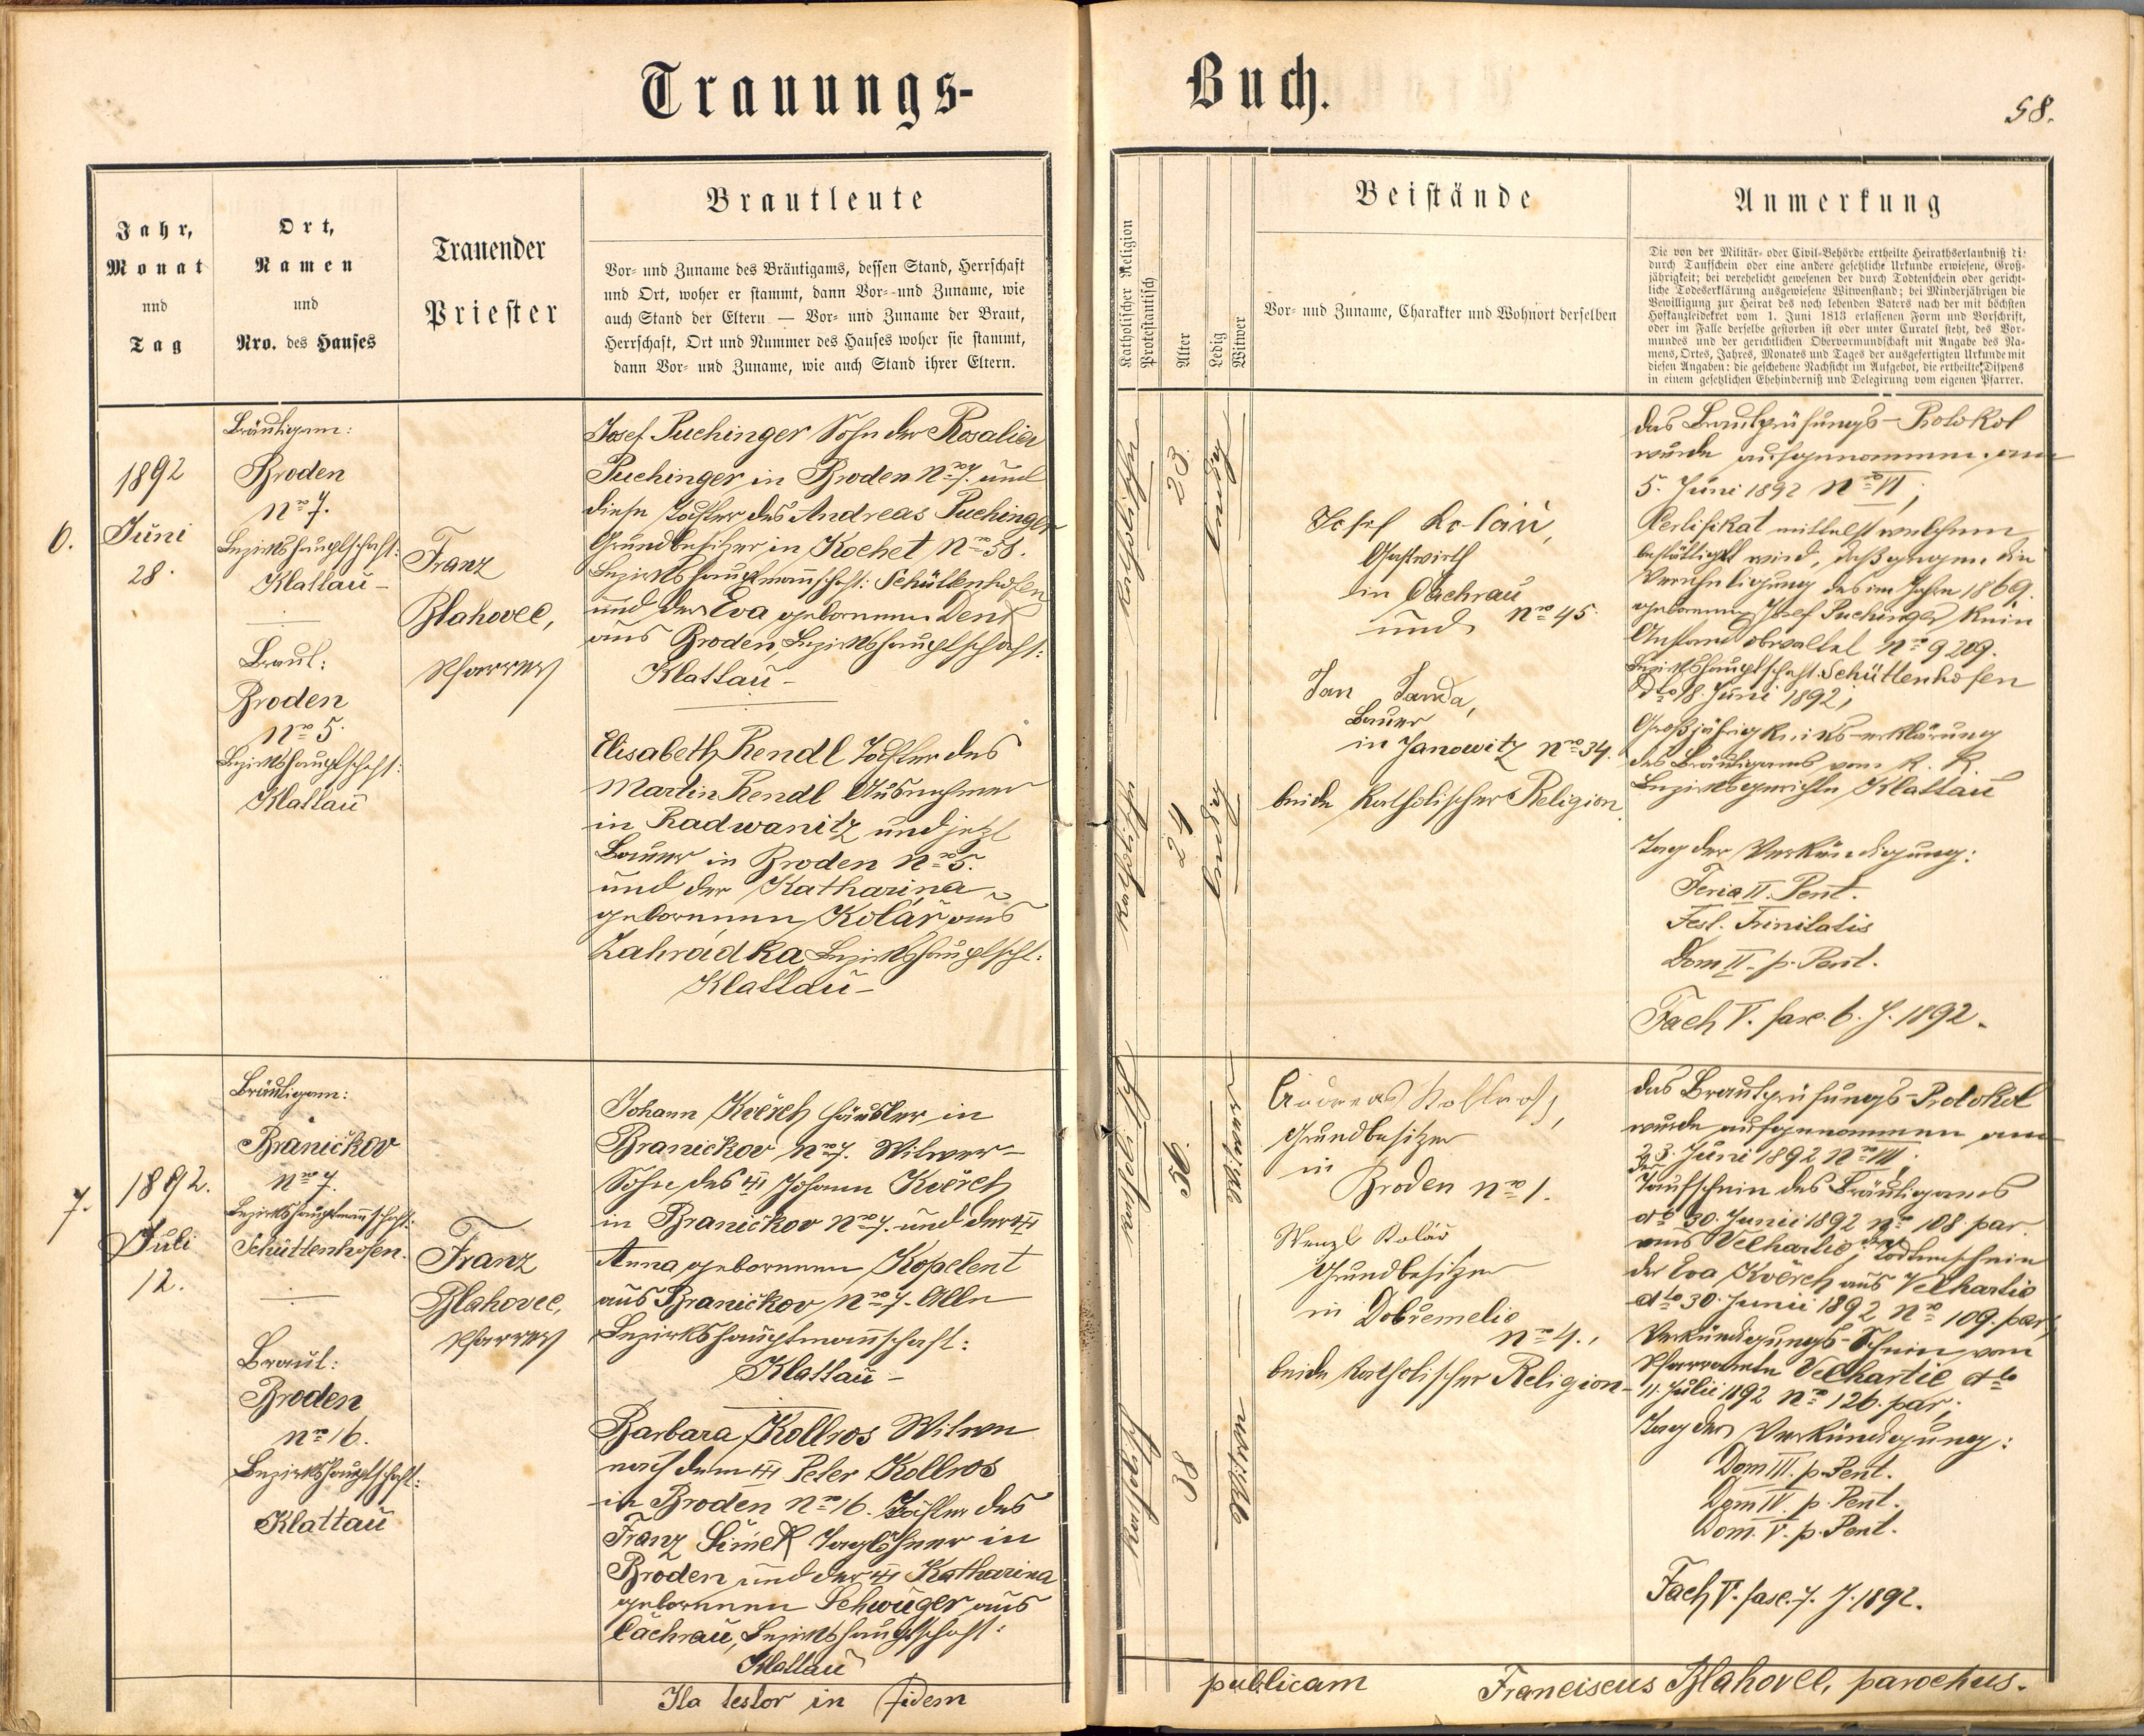 Trauungs-
Buch.
58.
Jahr,
Monat
und
Tag
Ort,
Namen
und
Nro. des Hauses
Trauender
Priester
Brautleute
Vor- und Zuname des Bräutigams, dessen Stand, Herrschaft
und Ort, woher er stammt, dann Vor- und Zuname, wie
auch Stand der Eltern — Vor- und Zuname der Braut,
Herrschaft, Ort und Nummer des Hauses woher sie stammt,
dann Vor- und Zuname, wie auch Stand ihrer Eltern.
Katholischer Religion
Protestantisch
Alter
Ledig
Witwer
Beistände
Vor- und Zuname, Charakter und Wohnort derselben
Anmerkung
Die von der Militär- oder Civil-Behörde ertheilte Heirathserlaubniß di:
durch Taufschein oder eine andere gesetzliche Urkunde erwiesene, Groß-
jährigkeit; bei verehelicht gewesenen der durch Todtenschein oder gericht-
liche Todeserklärung ausgewiesene Witwenstand; bei Minderjährigen die
Bewilligung zur Heirat des noch lebenden Vaters nach der mit höchsten
Hofkanzleidekret vom 1. Juni 1813 erlassenen Form und Vorschrift,
oder im Falle derselbe gestorben ist oder unter Curatel steht, des Vor-
mundes und der gerichtlichen Obervormundschaft mit Angabe des Na-
mens, Ortes, Jahres, Monates und Tages der ausgefertigten Urkunde mit
diesen Angaben: die geschehene Nachsicht im Aufgebot, die ertheilte Dispens
in einem gesetzlichen Ehehinderniß und Delegirung vom eigenen Pfarrer.
6.
1892
Juni
28.
Bräutigam:
Broden
Nro 7.
Bezirkshauptschaft:
Klattau –
Braut:
Broden
Nro 5.
Bezirkshauptschaft:
Klattau
Franz
Blahovec,
Pfarrer
Josef Puchinger Sohn der Rosalia
Puchinger in Broden Nro 7. und
diese Tochter des Andreas Puchinger
Grundbesitzer in Kochet Nro 58.
Bezirkshauptmannschaft: Schüttenhofen
und der Eva geborenen Denk
aus Broden, Bezirkshauptschaft:
Klattau –
Elisabeth Rendl Tochter des
Martin Rendl Ausnehmer
in Radwanitz und jetzt
Bauer in Broden Nro 5.
und der Katharina
geborenen Kolář aus
Zahrádka Bezirkshauptscht:
Klattau –
katholisch
23.
ledig
katholisch
24
ledig
Josef Kolář,
Gastwirth
in Čachrau
und Nro 45.
Jan Janda,
Bauer
in Janowitz Nro 34.
beide katholischer Religion.
das Brautprüfungs-Protokol
wurde aufgenommen am
5. Juni 1892 Nro VI;
Certifikat mittelst welchem
bestättigt wird, daß gegen die
Verehelichung des im Jahre 1869.
geborenen Josef Puchinger kein
Anstand obwaltet Nro 9209.
Bezirkshauptschaft Schüttenhofen
dto 18. Juni 1892;
Großjährigkeitserklärung
des Bräutigams vom k. k.
Bezirksgerichte Klattau
Tag der Verkündigung:
Feria II. Pent.
Fest. Trinitatis
Dom II. p. Pent.
Fach V. fasc. 6. J. 1892.
7.
1892.
Juli
12.
Bräutigam:
Braničkov
Nro 7.
Bezirkshauptmannschaft:
Schüttenhofen.
Braut:
Broden
Nro 16.
Bezirkshauptschaft:
Klattau
Franz
Blahovec,
Pfarrer
Johann Kvěrch Häusler in
Braničkov Nro 7. Witwer –
Sohn des Johann Kvěrch
in Braničkov Nro 7. und der
Anna geborenen Kopelent
aus Braničkov Nro 7. Alle
Bezirkshauptmannschaft:
Klattau –
Barbara Kollros Witwe
nach dem Peter Kollros
in Broden Nro 16. Tochter des
Franz Šimek Taglöhner in
Broden und der Katharina
geborenen Schwuger aus
Čachrau, Bezirkshauptschaft:
Klattau
katholisch
56.
Witwer
katholisch
38
Witwe
Andreas Kollros,
Grundbesitzer
in
Broden Nro 1.
Wenzl Kolář
Grundbesitzer
in Dobřemelic
Nro 4.,
beide katholischer Religion –
das Brautprüfungs-Protokol
wurde aufgenommen am
23. Juni 1892 Nro VII.
der Taufschein des Bräutigams
dto 30. Junii 1892 Nro 108. par
aus Velhartic; der Todtenschein
der Eva Kvěrch aus Velhartic
dto 30. Junii 1892 Nro 109. par,
Verkündigungs-Schein vom
Pfarramte Velhartic dto
11. Julii 1892 Nro 126. par;
Tag der Verkündigung:
Dom III. p. Pent.
Dom IV. p. Pent.
Dom. V. p. Pent.
Fach V. fasc. 7. J. 1892.
Ita testor in fidem
publicam
Franciscus Blahovec, parochus.